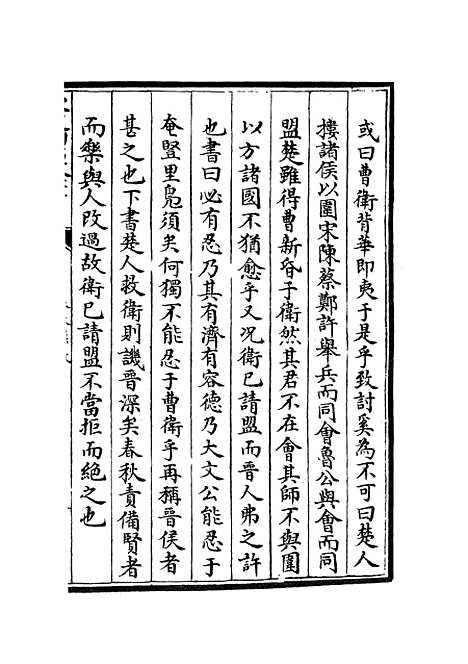 或曰曹衛背華即夷于是乎致討奚為不可曰楚人
摟諸侯以圍宋陳蔡鄭許舉兵而同會魯公與會而同
盟楚雖得曹新昏于衛然其君不在會其師不與圍
以方諸國不猶愈乎又况衛已請盟而晉人弗之許
也書曰必有忍乃其有濟有容德乃大文公能忍于
奄豎里鳧須矣何獨不能忍于曹衛乎再稱晉侯者
甚之也下書楚人救衛則譏晉深矣春秋責備賢者
而樂與人改過故衛已請盟不當拒而絕之也